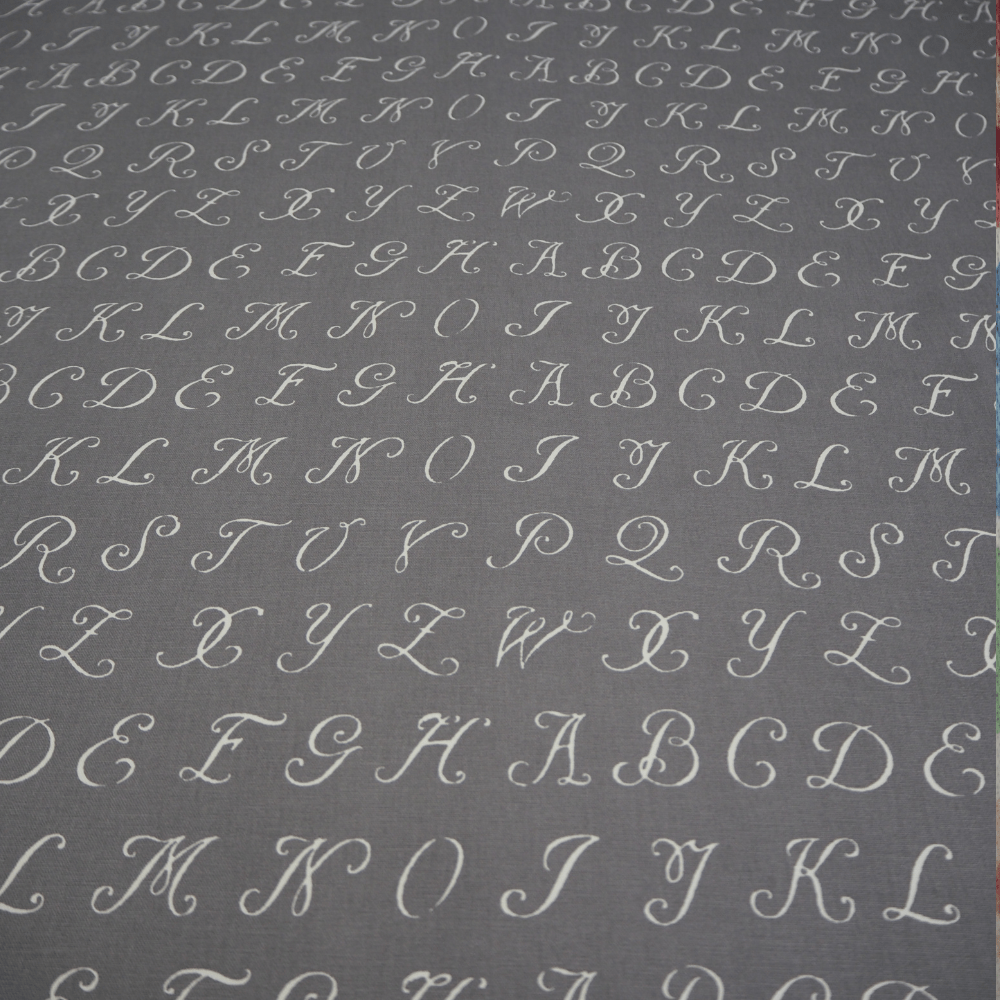 A B C D E F G H A B C D E F G H
I J K L M N O I J K L M N O
A B C D E F G H A B C D E F G H
I J K L M N O I J K L M N O
P Q R S T U V P Q R S T U V
X Y Z X Y Z W X Y Z X Y Z
B C D E F G H A B C D E F G
J K L M N O I J K L M N
B C D E F G H A B C D E F
K L M N O I J K L M
R S T U V P Q R S T
Y Z X Y Z W X Y Z X
D E F G H A B C D E
L M N O I J K L
E F G H A B C D